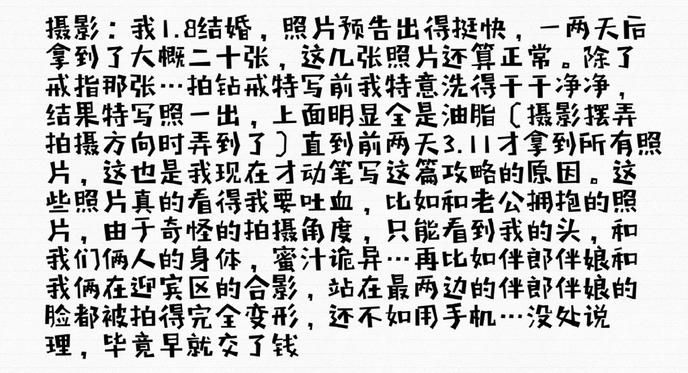 摄影：我1.8结婚，照片预告出得挺快，一两天后
拿到了大概二十张，这几张照片还算正常。除了
戒指那张…拍钻戒特写前我特意洗得干干净净，
结果特写照一出，上面明显全是油脂（摄影摆弄
拍摄方向时弄到了）直到前两天3.11才拿到所有照
片，这也是我现在才动笔写这篇攻略的原因。这
些照片真的看得我要吐血，比如和老公拥抱的照
片，由于奇怪的拍摄角度，只能看到我的头，和
我们俩人的身体，蜜汁诡异…再比如伴郎伴娘和
我俩在迎宾区的合影，站在最两边的伴郎伴娘的
脸都被拍得完全变形，还不如用手机…没处说
理，毕竟早就交了钱